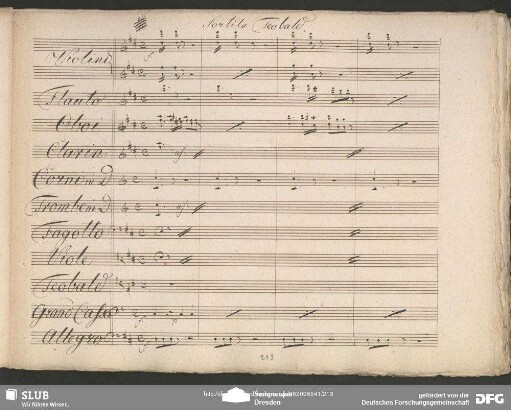 Sortita Teobaldo
Violini
Flauto
Oboi
Clarin
Corni in D
Trombe in D
Fagotto
Viole
Teobaldo
Gran Cassa
Allegro
213
SLUB
Wir führen Wissen.
Dresden
gefördert von der
Deutschen Forschungsgemeinschaft
DFG